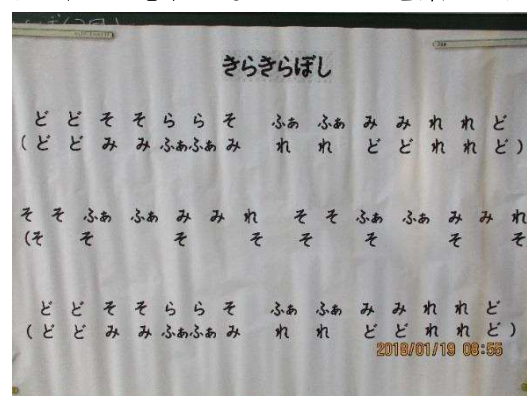 きらきらぼし
ど ど そ そ ら ら そ ふぁ ふぁ み み れ れ ど
( ど ど み み ふぁ ふぁ み れ れ ど ど れ れ ど )
そ そ ふぁ ふぁ み み れ そ そ ふぁ ふぁ み み れ
(そ そ そ そ そ そ そ そ
ど ど そ そ ら ら そ ふぁ ふぁ み み れ れ ど
( ど ど み み ふぁ ふぁ み れ れ ど ど れ れ ど )
2018/01/19 08:55